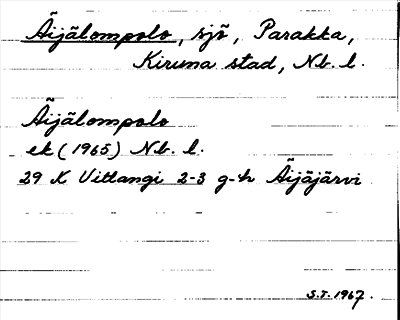 Äijälompolo, sjö, Parakka,
Kiruna stad, Nb. l.
Äijälompolo
ek (1965) Nb. l.
29 K Vittangi 2-3 g-h Äijäjärvi
S.T. 1967.